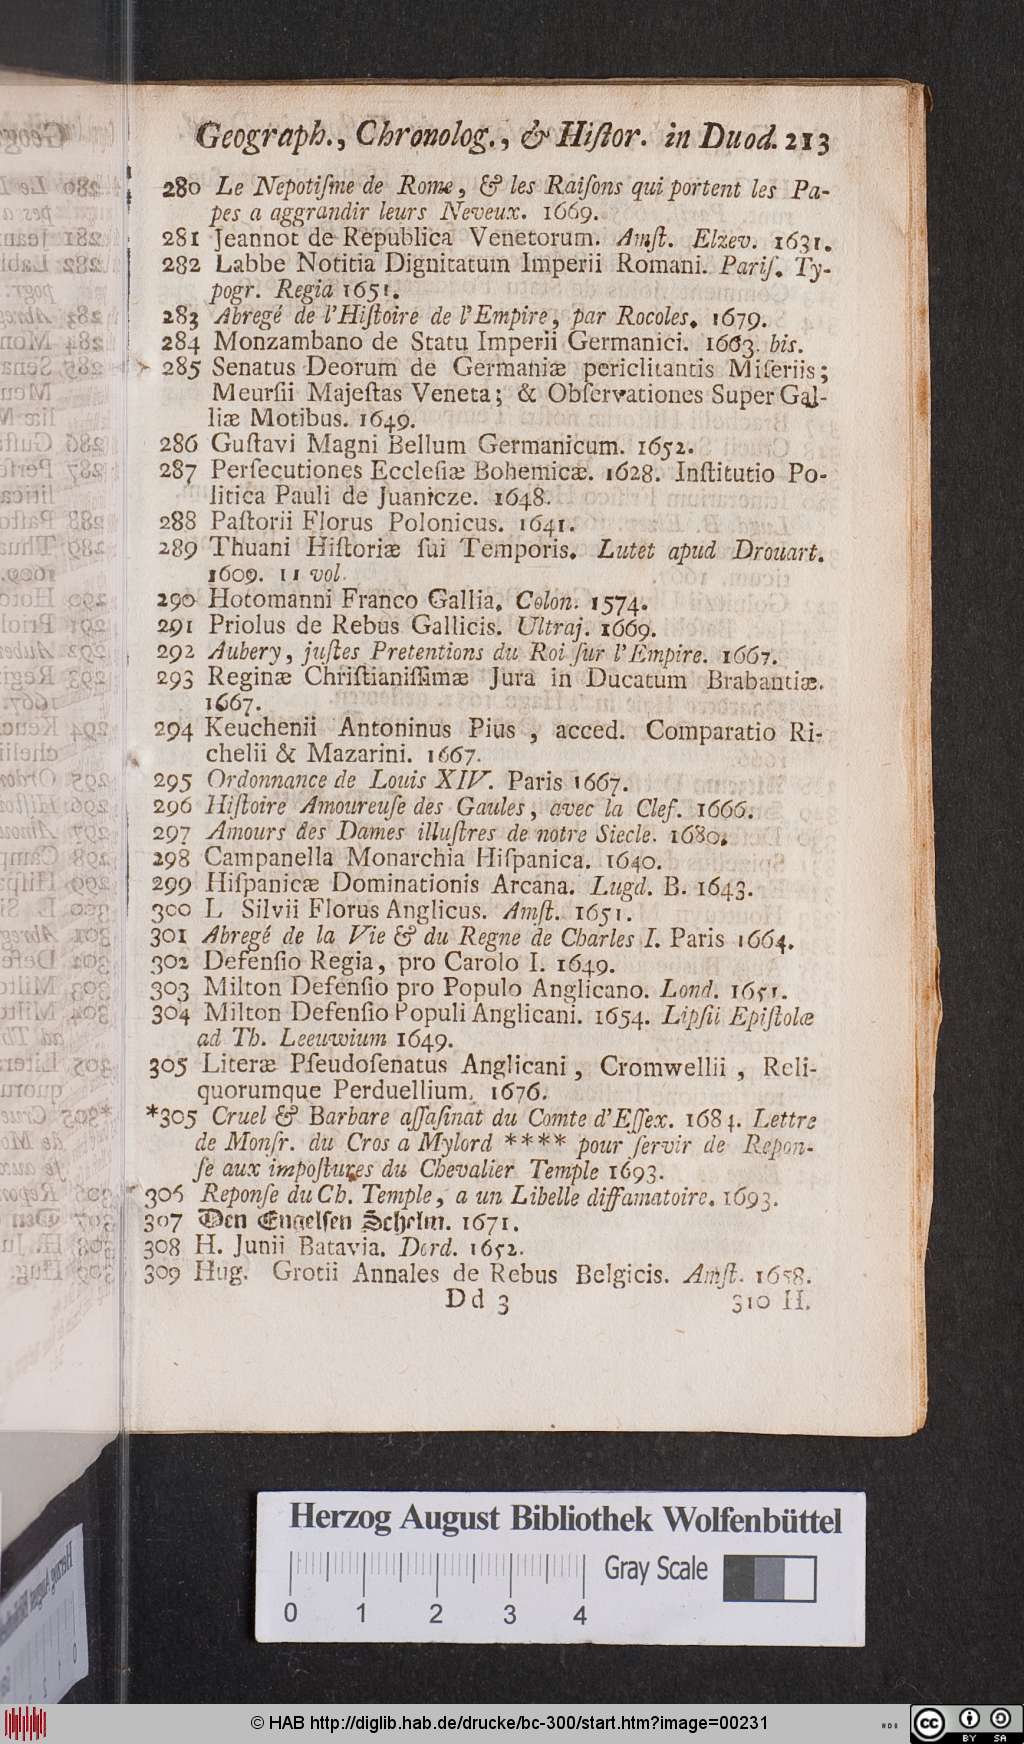 Geograph., Chronolog., & Hiſtor. in Duod. 213
280 Le Nepotiſme de Rome, & les Raiſons qui portent les Pa-
pes a aggrandir leurs Neveux. 1669.
281 Jeannot de Republica Venetorum. Amſt. Elzev. 1631.
282 Labbe Notitia Dignitatum Imperii Romani. Pariſ. Ty-
pogr. Regia 1651.
283 Abregé de l'Hiſtoire de l'Empire, par Rocoles. 1679.
284 Monzambano de Statu Imperii Germanici. 1663. bis.
285 Senatus Deorum de Germaniæ periclitantis Miſeriis;
Meurſii Majeſtas Veneta; & Obſervationes Super Gal-
liæ Motibus. 1649.
286 Guſtavi Magni Bellum Germanicum. 1652.
287 Perſecutiones Eccleſiæ Bohemicæ. 1628. Inſtitutio Po-
litica Pauli de Juanicze. 1648.
288 Paſtorii Florus Polonicus. 1641.
289 Thuani Hiſtoriæ ſui Temporis. Lutet apud Drouart.
1609. 11 vol.
290 Hotomanni Franco Gallia. Colon. 1574.
291 Priolus de Rebus Gallicis. Ultraj. 1669.
292 Aubery, juſtes Pretentions du Roi ſur l'Empire. 1667.
293 Reginæ Chriſtianiſſimæ Jura in Ducatum Brabantiæ.
1667.
294 Keuchenii Antoninus Pius, acced. Comparatio Ri-
chelii & Mazarini. 1667.
295 Ordonnance de Louis XIV. Paris 1667.
296 Hiſtoire Amoureuſe des Gaules, avec la Clef. 1666.
297 Amours des Dames illuſtres de notre Siecle. 1680.
298 Campanella Monarchia Hiſpanica. 1640.
299 Hiſpanicæ Dominationis Arcana. Lugd. B. 1643.
300 L Silvii Florus Anglicus. Amſt. 1651.
301 Abregé de la Vie & du Regne de Charles I. Paris 1664.
302 Defenſio Regia, pro Carolo I. 1649.
303 Milton Defenſio pro Populo Anglicano. Lond. 1651.
304 Milton Defenſio Populi Anglicani. 1654. Lipſii Epiſtolæ
ad Th. Leeuwium 1649.
305 Literæ Pſeudoſenatus Anglicani, Cromwellii, Reli-
quorumque Perduellium. 1676.
*305 Cruel & Barbare aſſaſinat du Comte d'Eſſex. 1684. Lettre
de Monſr. du Cros a Mylord **** pour ſervir de Repon-
ſe aux impoſtures du Chevalier Temple 1693.
306 Reponſe du Ch. Temple, a un Libelle diffamatoire. 1693.
307 Den Engelſen Schelm. 1671.
308 H. Junii Batavia. Dord. 1652.
309 Hug. Grotii Annales de Rebus Belgicis. Amſt. 1658.
Dd 3 310 H.
Herzog August Bibliothek Wolfenbüttel
Gray Scale
0 1 2 3 4
© HAB http://diglib.hab.de/drucke/bc-300/start.htm?image=00231
cc BY SA